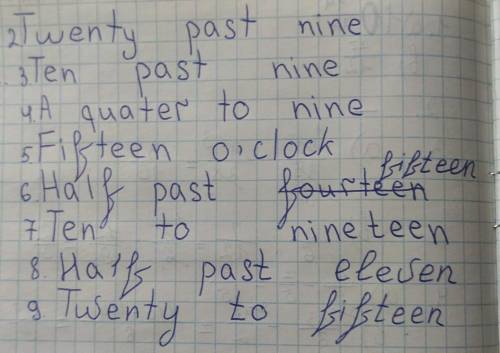 2.Twenty past nine
3.Ten past nine
4.A quater to nine
5.Fifteen o'clock
fifteen
6.Half past fourteen
7.Ten to nineteen
8.Half past eleven
9.Twenty to fifteen